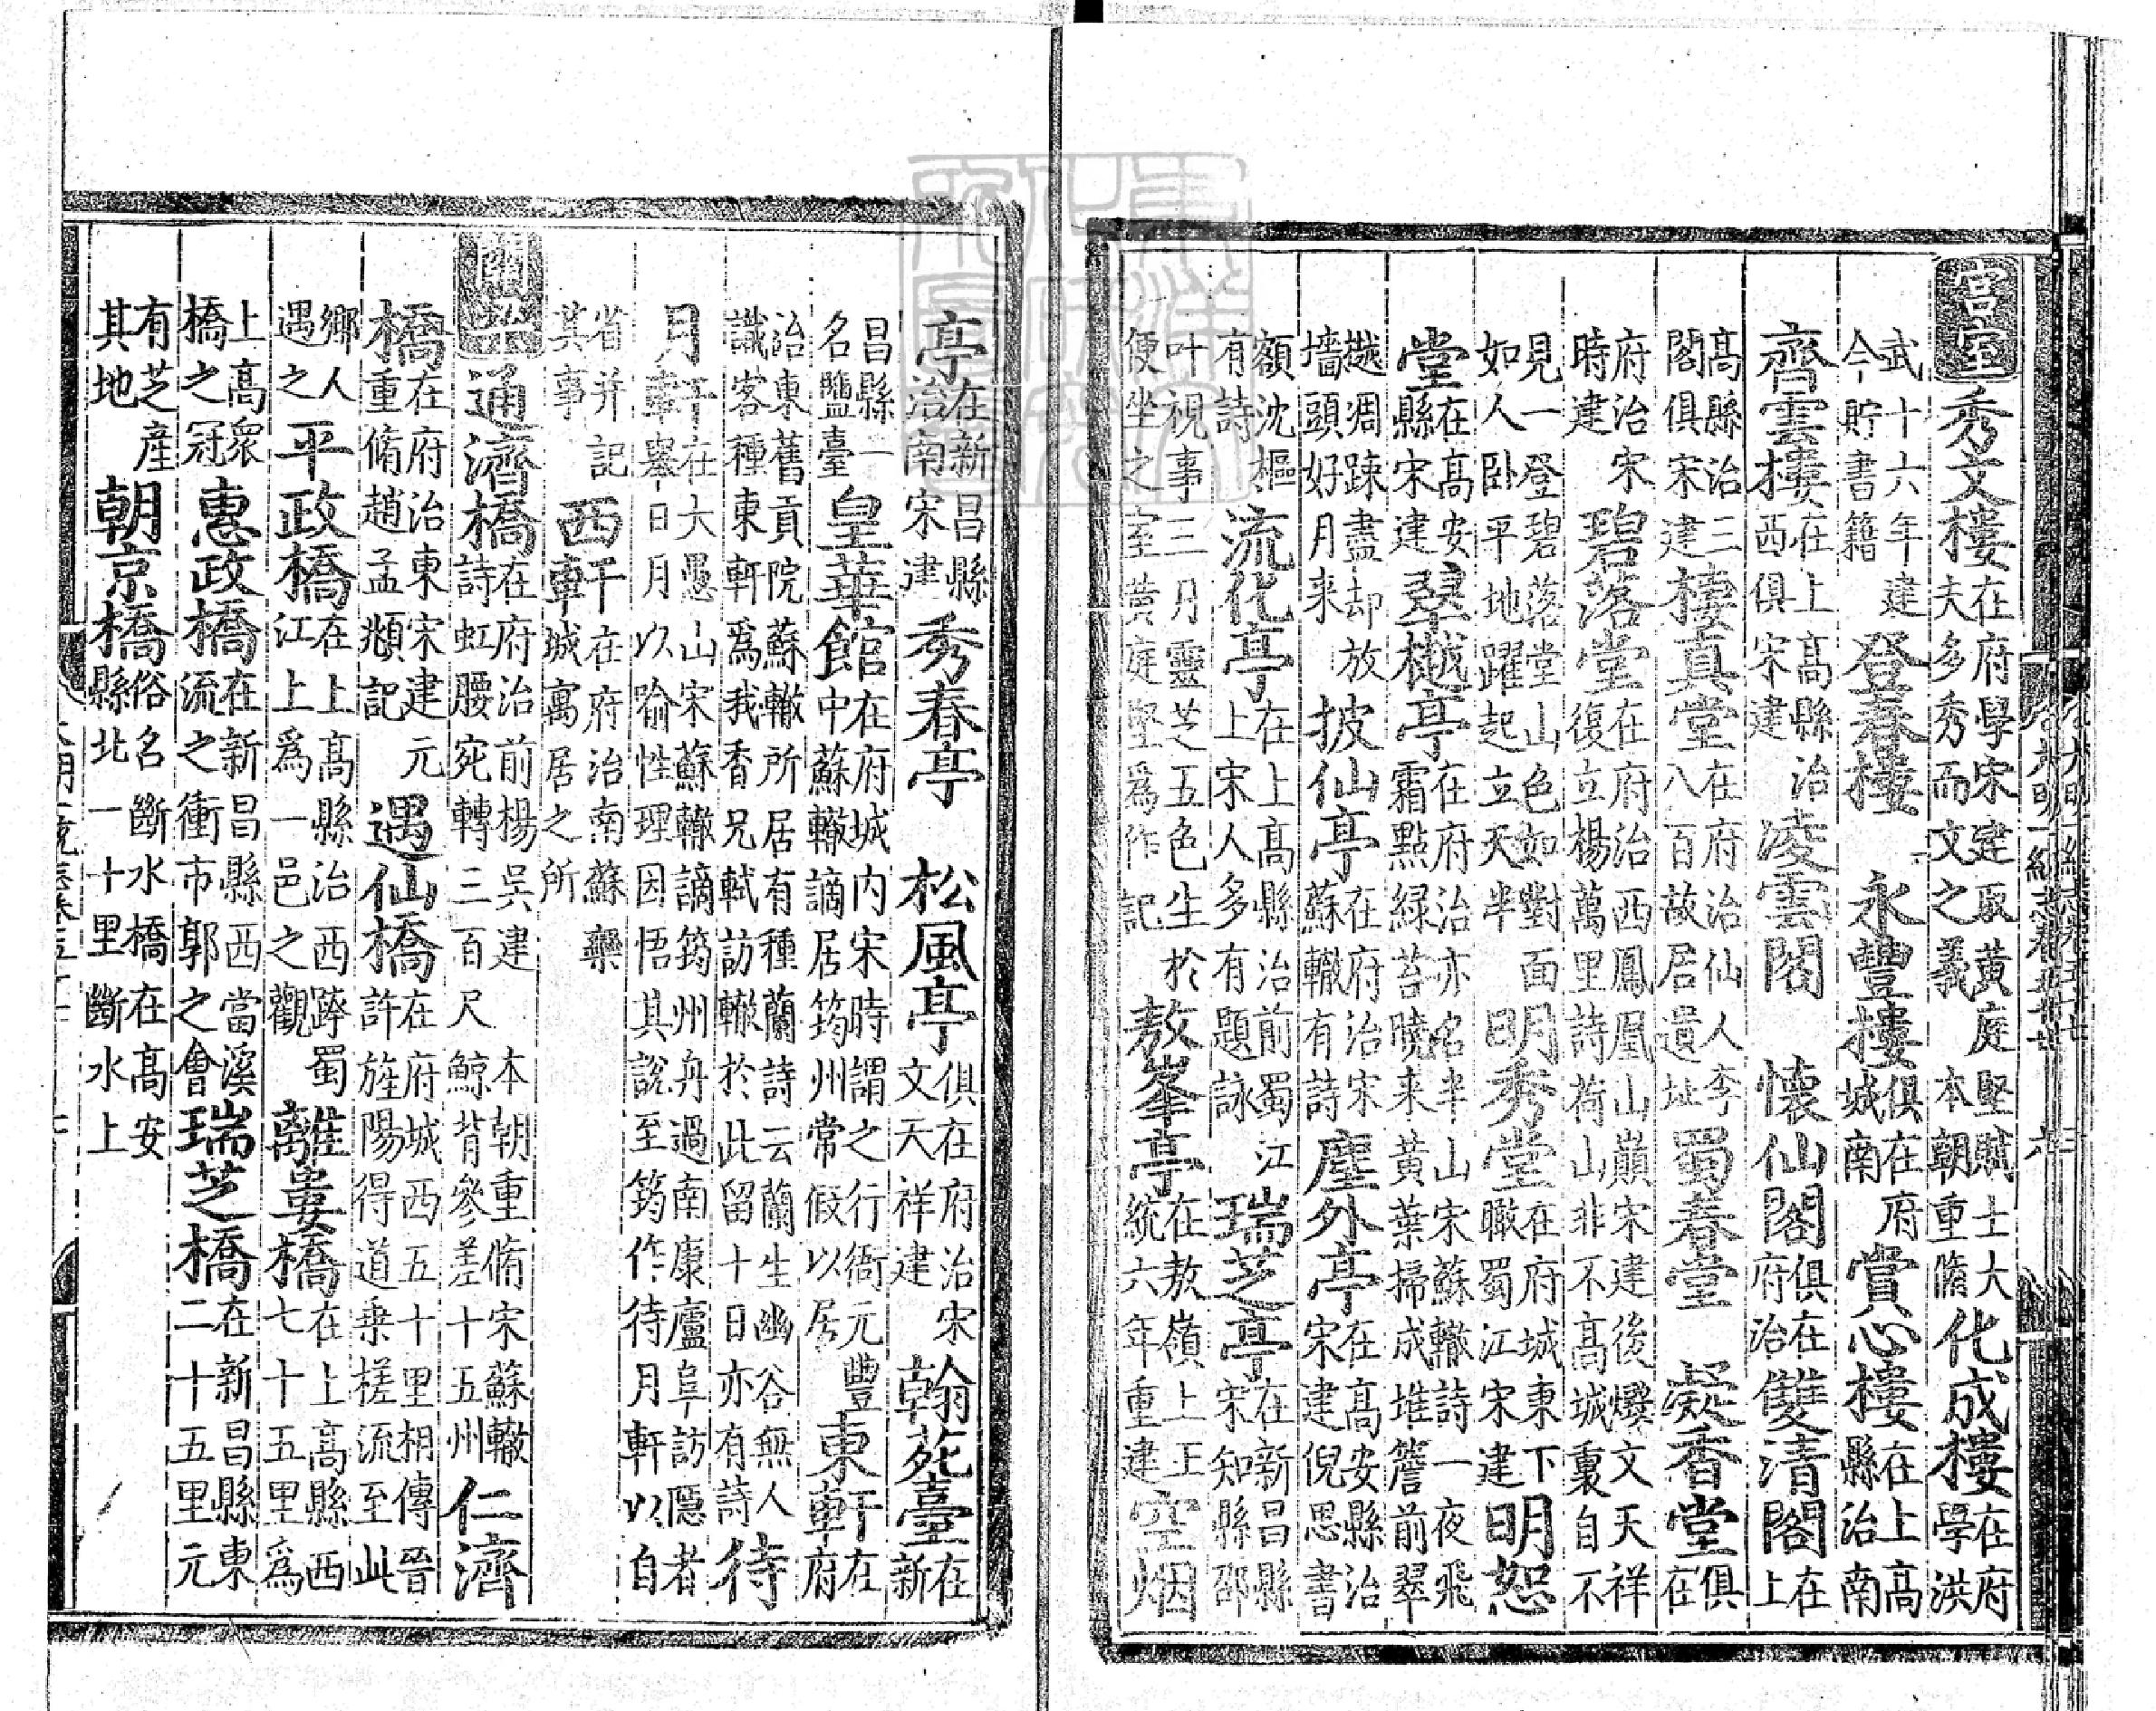 宮室 秀文樓在府學宋建取黃庭堅賦士大夫多秀而文之義 本朝重脩 化成樓在府學洪
武十六年建今貯書籍 登春樓 永豐樓俱在府城南 賞心樓在上高縣治南
齊雲樓在上高縣治西俱宋建 凌雲閣 懷仙閣俱在府治 雙清閣在上
高縣治三閣俱宋建 棲真堂在府治仙人李八百故居遺址 蜀春堂 凝香堂俱在
府治宋時建 碧落堂在府治西鳳凰山巔宋建後燬文天祥復立楊萬里詩荷山非不高城裏自不
見一登碧落堂山色如對面如人卧平地躍起立天半 明秀堂在府城東下瞰蜀江宋建 明恕
堂在高安縣宋建 翠樾亭在府治亦名半山宋蘇轍詩一夜飛霜點緑苔曉来黃葉掃成堆簷前翠
樾凋踈盡却放墻頭好月来 披仙亭在府治宋蘇轍有詩 塵外亭在高安縣治宋建倪思書
額沈樞有詩 流化亭在上高縣治前蜀江上宋人多有題詠 瑞芝亭在新昌縣宋知縣邵
叶視事三月靈芝五色生於便坐之室黃庭堅爲作記 敖峯亭在敖嶺上正統六年重建 空烟
亭在新昌縣治南宋建 秀春亭 松風亭俱在府治宋文天祥建 翰苑臺在新
昌縣一名鹽臺 皇華館在府城内宋時謂之行衙元豐中蘇轍謫居筠州常假以居 東軒在府
治東舊貢院蘇轍所居有種蘭詩云蘭生幽谷無人識客種東軒爲我香兄軾訪轍於此留十日亦有詩 待
月軒在大愚山宋蘇轍謫筠州舟過南康廬阜訪隱者舉日月以喻性理因悟其說至筠作待月軒以自
省并記其事 西軒在府治南蘇欒城寓居之所
關梁 通濟橋在府治前楊吳建 本朝重脩宋蘇轍詩虹腰宛轉三百尺鯨背參差十五州 仁濟
橋在府治東宋建元重脩趙孟頫記 遇仙橋在府城西五十里相傳晉許旌陽得道乗槎流至此
鄉人遇之 平政橋在上高縣治西跨蜀江上爲一邑之觀 離婁橋在上高縣西七十五里爲
上高衆橋之冠 惠政橋在新昌縣西當溪流之衝市郭之會 瑞芝橋在新昌縣東二十五里元
有芝產其地 朝京橋俗名斷水橋在高安縣北一十里斷水上